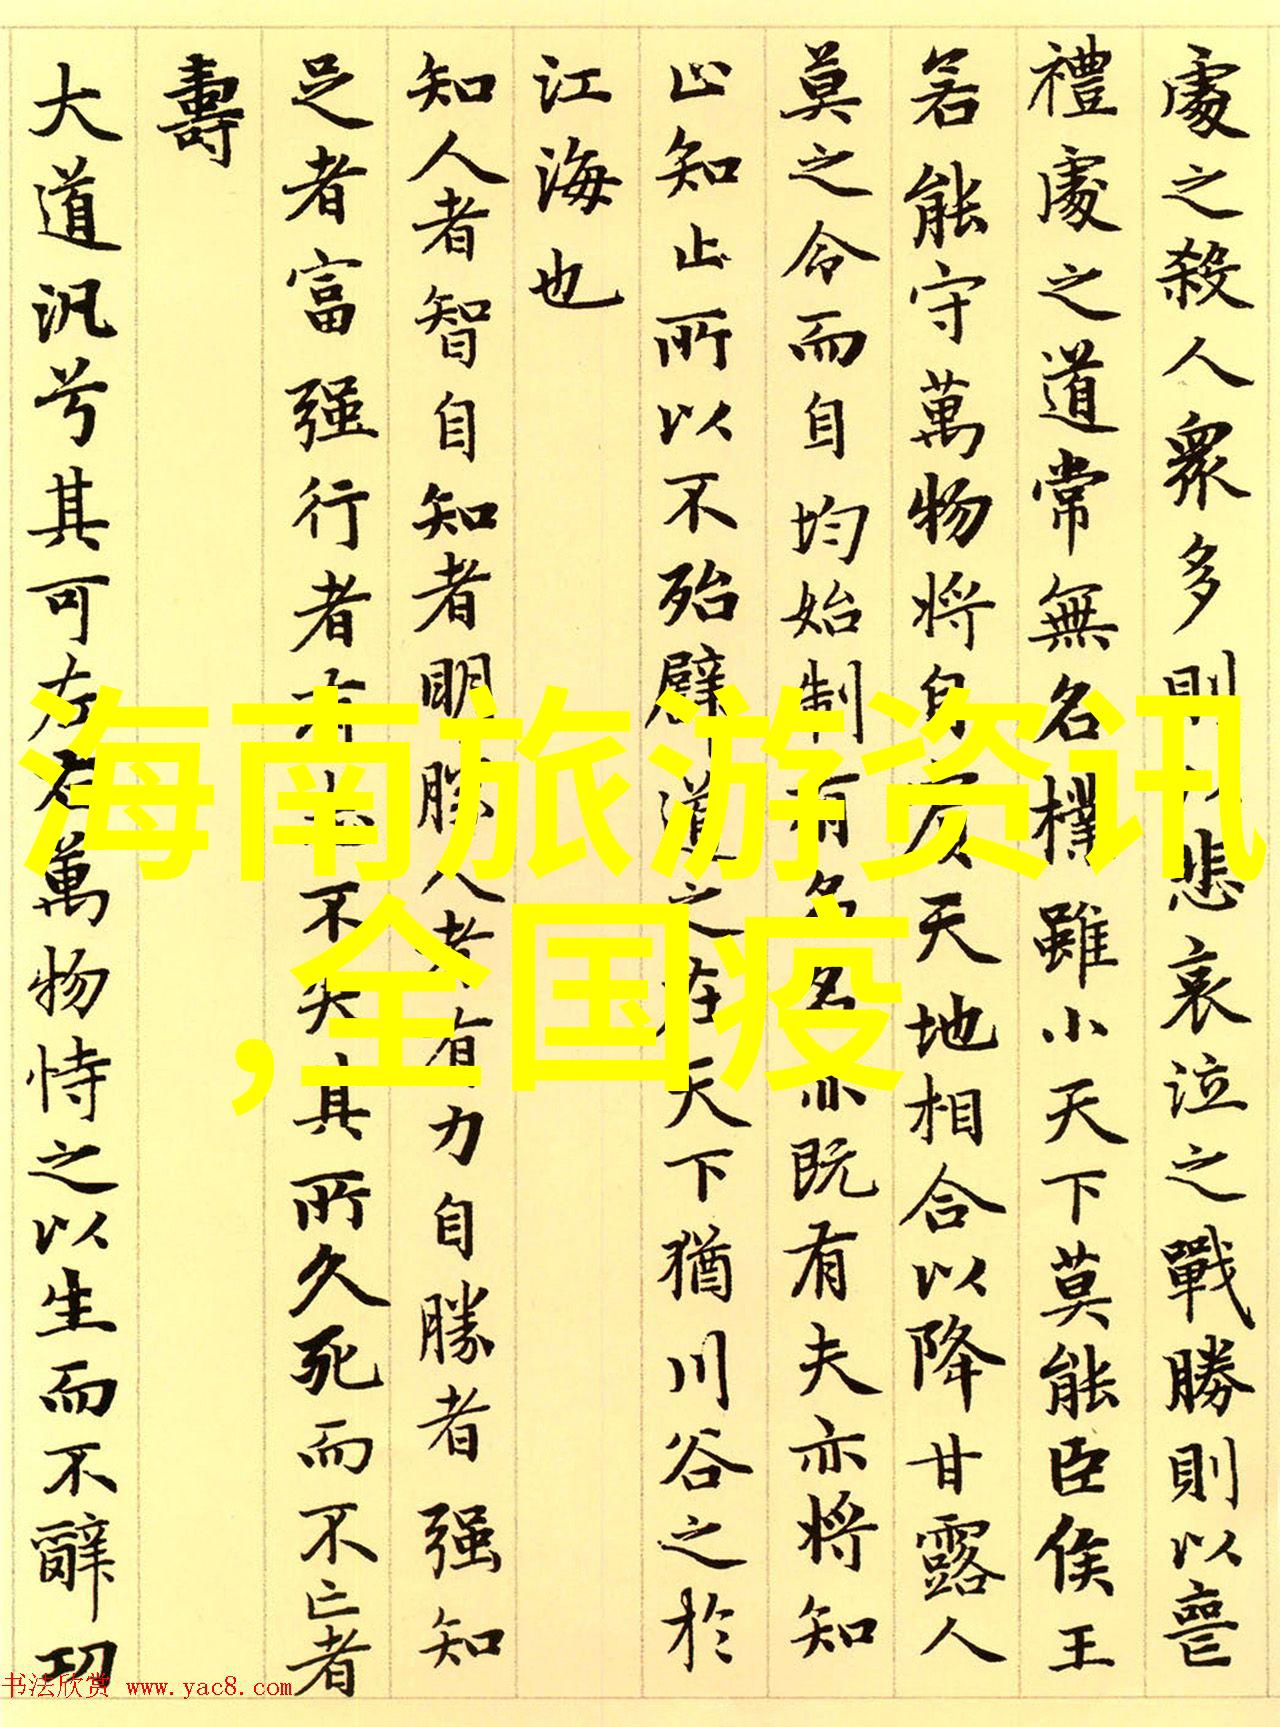 處之殺人衆多則以悲哀泣之戰勝則以喪
禮處之道常無名樸雖小天下莫能臣侯王
若能守萬物將自賓天地相合以降甘露人
莫之令而自均始制有名名亦既有夫亦將知
止知止所以不殆譬道之在天下猶川谷之於
江海也
知人者智自知者明勝人者有力自勝者强知
足者富强行者有志不失其所久死而不亡者
壽
大道汎兮其可左右萬物恃之以生而不辭功
海南旅游资讯
,全国疫
书法欣赏 www.yac8.com